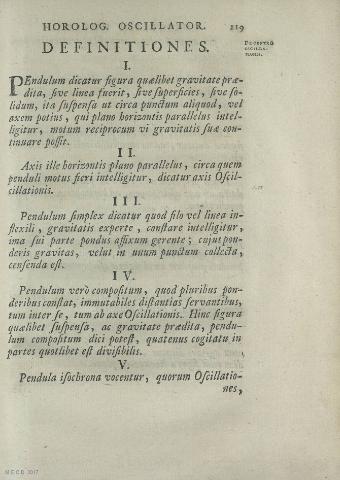 HOROLOG. OSCILLATOR. 219
DE CENTRO
OSCILLA-
TIONIS.
DEFINITIONES.
I.
PEndulum dicatur figura quælibet gravitate præ-
dita, sive linea fuerit, sive superficies, sive so-
lidum, ita suspensa ut circa punctum aliquod, vel
axem potius, qui plano horizontis parallelus intel-
ligitur, motum reciprocum vi gravitatis suæ con-
tinuare possit.
II.
Axis ille horizontis plano parallelus, circa quem
penduli motus fieri intelligitur, dicatur axis Oscil-
cillationis.
III.
Pendulum simplex dicatur quod filo vel linea in-
flexili, gravitatis experte, constare intelligitur,
ima sui parte pondus affixum gerente; cujus pon-
deris gravitas, velut in unum punctum collecta,
censenda est.
IV.
Pendulum verò compositum, quod pluribus pon-
deribus constat, immutabiles distantias servantibus,
tum inter se, tum ab axe Oscillationis. Hinc figura
quælibet suspensa, ac gravitate prædita, pendu-
lum compositum dici potest, quatenus cogitatu in
partes quotlibet est divisibilis.
V.
Pendula isochrona vocentur, quorum Oscillatio-
nes,